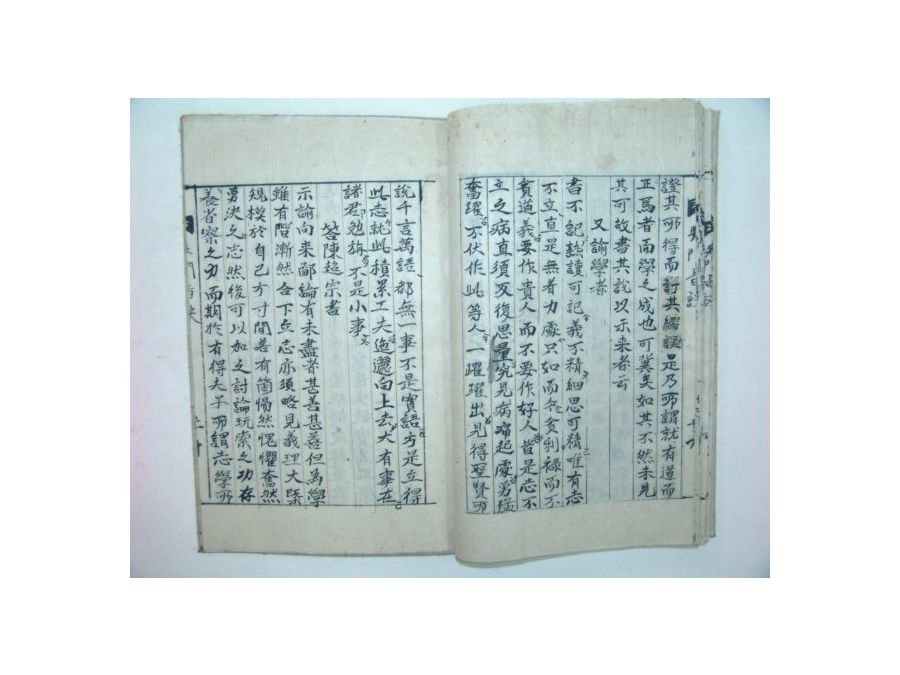 證其所得而訂其繆誤是乃所謂就有道而
正焉者而學之成也可冀矣如其不然未見
其可故書其說以示来者云
又諭學者
書不記熟讀可記義不精細思可精唯有志
不立直是無着力處只如而今貪利禄而不
貪道義要作貴人而不要作好人皆是志不
立之病直須反復思量究見病痛起處勇猛
奮躍不伏作此等人一躍躍出見得聖賢所
說千言萬語都無一事不是實語方是立得
此志就此積累工夫迤邐向上去大有事在
諸君勉旃不是小事
答陳超宗書
示諭向来鄙論有未盡者甚善甚善但為學
雖有階漸然合下立志亦須略見義理大槩
規模於自己方寸間善有箇惕然愧懼奮然
勇决之志然後可以加之討論玩索之功存
養省察之力而期於有得夫子所謂志學所